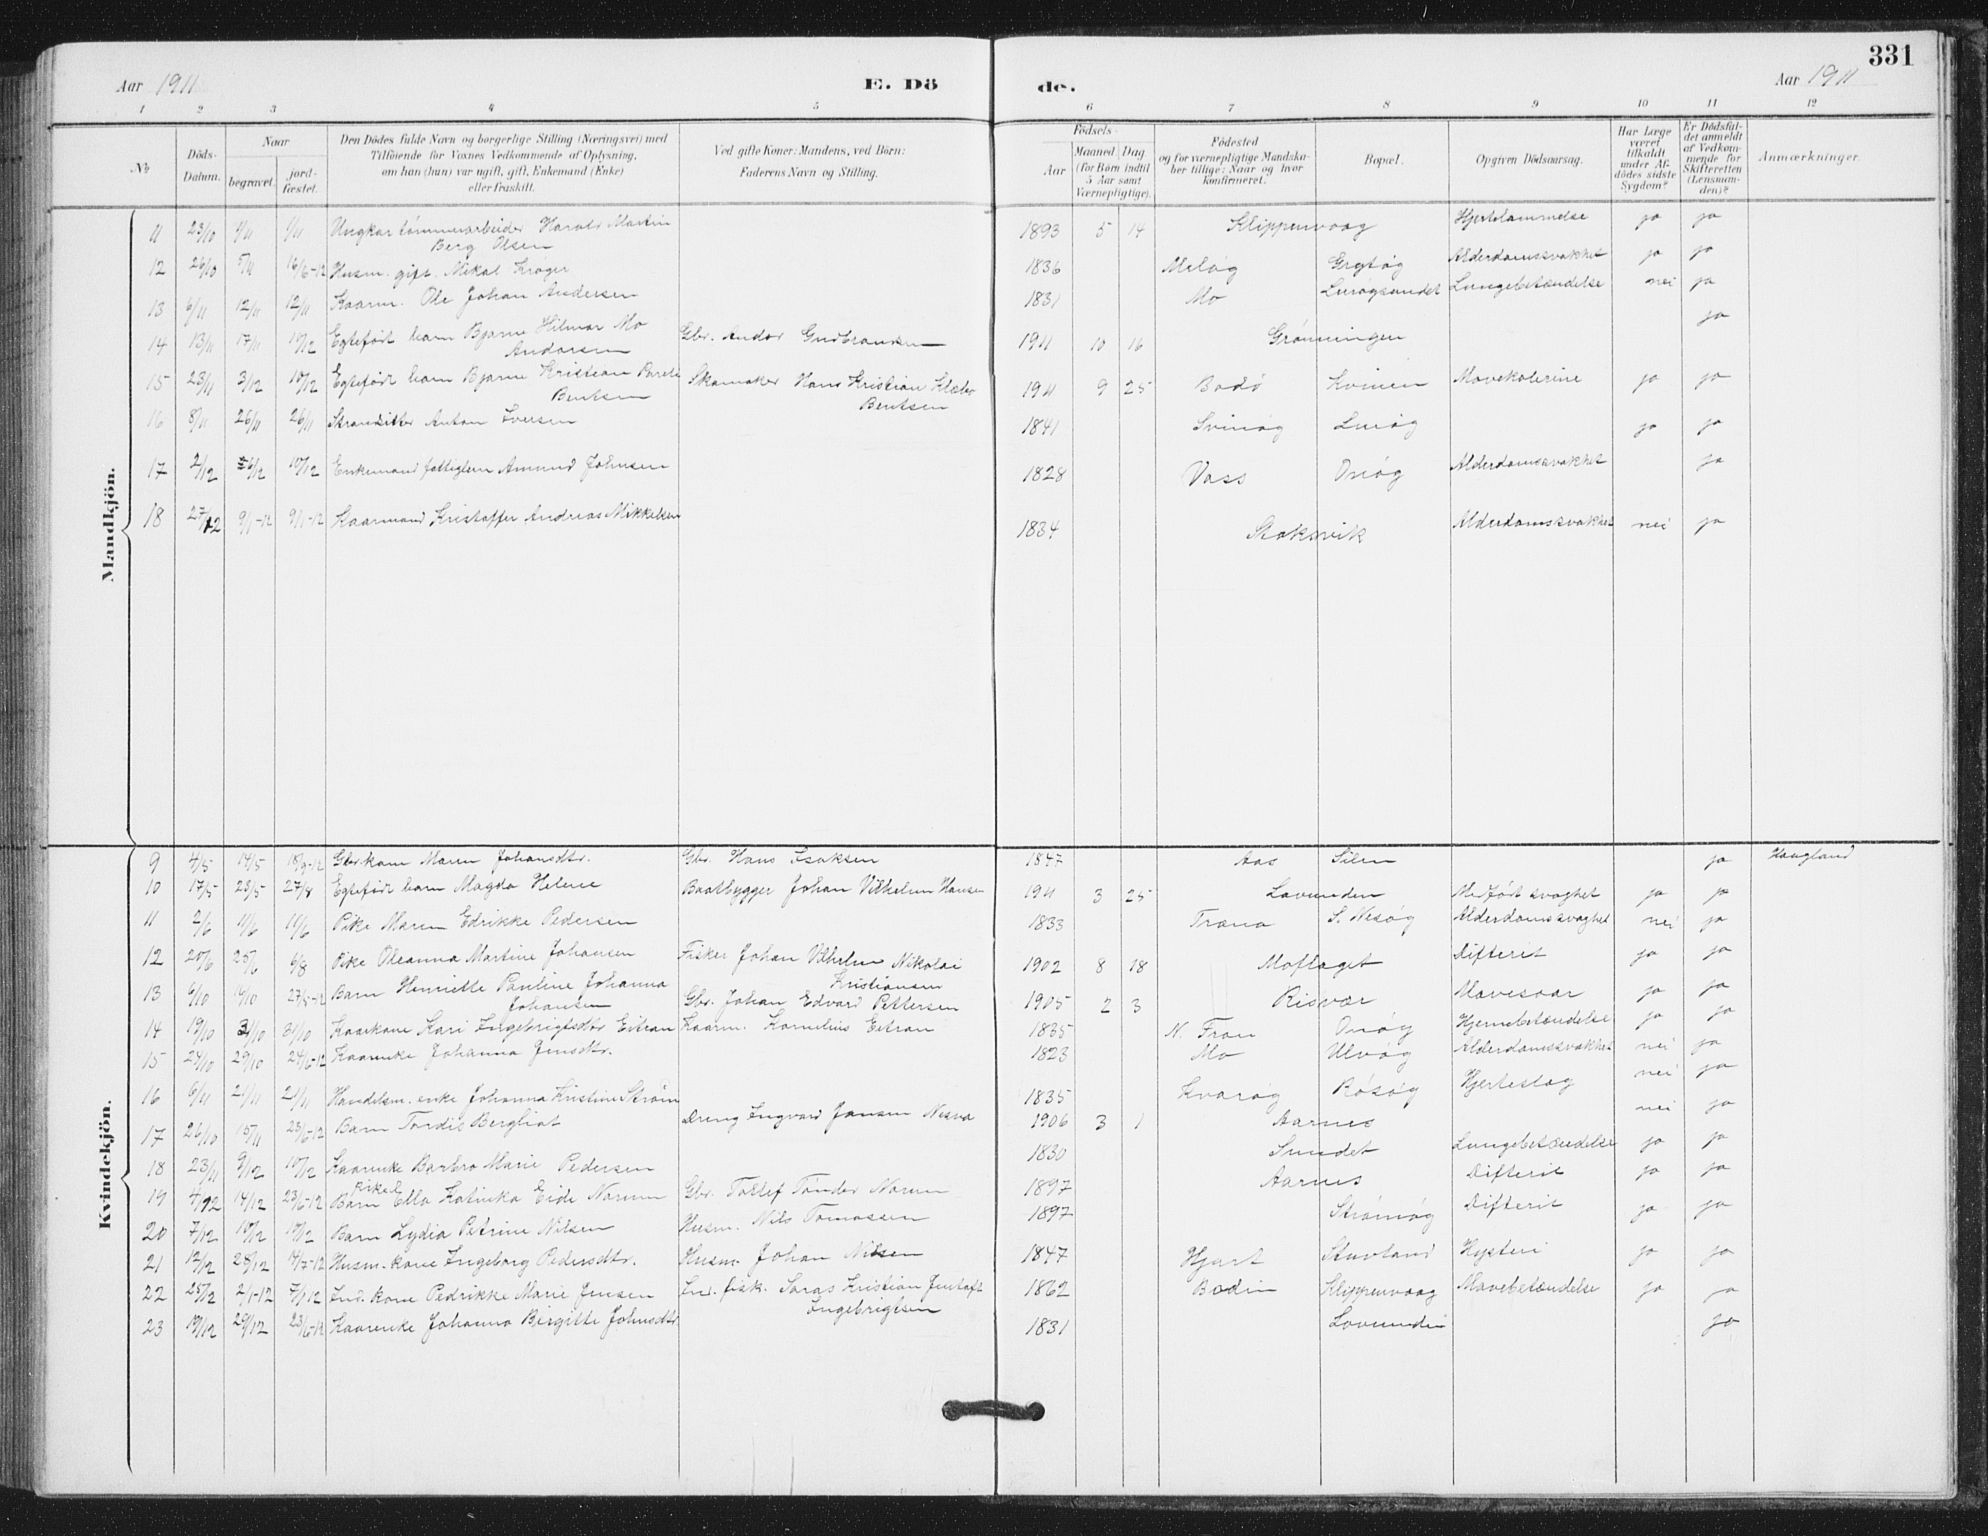 331
Aar 1911 E. Dö de. Aar 1911
1 2 3 4 5 6 7 8 9 10 11 12
№ Döds-Datum. Naar begravet. jord-fæstet. Den Dödes fulde Navn og borgerlige Stilling (Næringsvei) med Tilföiende for Voxnes Vedkommende af Oplysning, om han (hun) var ugift, gift, Enkemand (Enke) eller fraskilt. Ved gifte Koner: Mandens, ved Börn: Faderens Navn og Stilling. Födsels- Aar Maaned Dag (for Børn indtil 5 Aar samt Værnepligtige). Födested og for værnepligtige Mandska-ber tillige: Naar og hvor konfirmeret. Bopæl. Opgiven Dödsaarsag. Har Læge været tilkaldt under Af-dödes sidste Sygdom? Er Dödsfal-det anmeldt af Vedkom-mende for Skifteretten (Lensman-den)? Anmærkninger.
Mandkjön.
11 23/10 Ungkar tømmerarbeider Harald Martin Berg Olsen 1893 5 14 Klippenvaag Hjertelammelse ja ja
12 26/10 5/11 16/6-12 Husm. gift. Nikal Krøger 1836 Meløg Grgtøg Alderdomssvakhet ja ja
13 6/11 12/11 12/11 Kaarm. Ole Johan Andersen 1831 Mo Lurøgsundet Lungebetændelse nei ja
14 13/11 17/11 10/12 Egtefødt barn Bjarne Hilmar Mo Andorsen Gbr. Andor Gudbrandsen 1911 10 16 Grønningen ja
15 23/11 3/12 10/12 Egtefødt barn Bjarne Kristian Bentsen Skomaker Hans Kristian Bentsen 1911 9 25 Bodø Kvinen Mavekolerine ja ja
16 8/11 26/11 26/11 Strandsitter Anton Iversen 1841 Svinøg Lurøg ja ja
17 2/12 10/12 Enkemand fattiglem Amund Johnsen 1828 Vass Onøg Alderdomssvakhet ja
18 27/12 9/1-12 9/1-12 Kaarmand Kristoffer Andreas Mikkelsen 1834 Stoksvik Alderdomssvakhet nei ja
Kvindekjön.
9 4/5 14/5 18/9-12 Gbr.kone Maren Johansdtr. Gbr. Hans Isaksen 1847 Aas Silen ja Haugland
10 17/5 23/5 27/8 Egtefødt barn Magda Helene Baatbygger Johan Vilhelm Hansen 1911 3 25 Lovunden Medfødt svaghet ja ja
11 2/6 11/6 11/6 Pike Maren Edrikke Pedersen 1833 Træna S. Nesøg Alderdomssvaghet nei ja
12 20/6 25/6 6/8 Pike Oleanna Martine Johansen Fisker Johan Vilhelm Nikolai Kristiansen 1902 8 18 Moflaget Difterit ja ja
13 6/10 27/5-12 Barn Henriette Pauline Johanna Johansen Gbr. Johan Edvard Pettersen 1905 2 3 Risvær Mavesaar ja ja
14 19/10 31/10 31/10 Kaarkone Kari Ingebrigtsdtr Eitran Kaarm. Kornelius Eitran 1835 N. Fron Onøg Hjernebetændelse ja ja
15 24/10 29/10 24/6-12 Kaarenke Johanna Jensdtr. 1823 Mo Ulvøg Alderdomssvakhet nei ja
16 6/11 21/11 21/11 Handelsm. enke Johanna Kristine Strøm 1835 Kvarøg Røsøg Hjerteslag nei ja
17 26/10 15/11 23/6-12 Barn Tordis Bergliot Dreng Ingvard Jansen Nesva 1906 3 1 Aarnes nei ja
18 23/11 9/12 10/12 Kaarenke Barbro Marie Pedersen 1830 Sundet Lungebetændelse ja ja
19 4/12 14/12 23/6-12 Barn Ella Katinka Eide Norum Gbr. Tollef Tønder Norum 1897 Aarnes Difterit ja ja
20 7/12 10/12 10/12 Barn Lydia Petrine Nilsen Husm. Nils Tomassen 1897 Strømøg Difterit ja ja
21 12/12 28/12 14/7-12 Husm.kone Ingeborg Pedersdtr. Husm. Johan Nilsen 1847 Hjart Stuvland Hysteri ja ja
22 25/12 2/1-12 7/1-12 Ind. kone Pedrikke Marie Jensen Ind. fisk. Kristian Jentoft Ingebrigtsen 1862 Bodin Klippenvaag Mavebetændelse ja ja
23 19/12 29/12 23/6-12 Kaarenke Johanna Birgitte Johnsdtr 1831 Lovunden ja